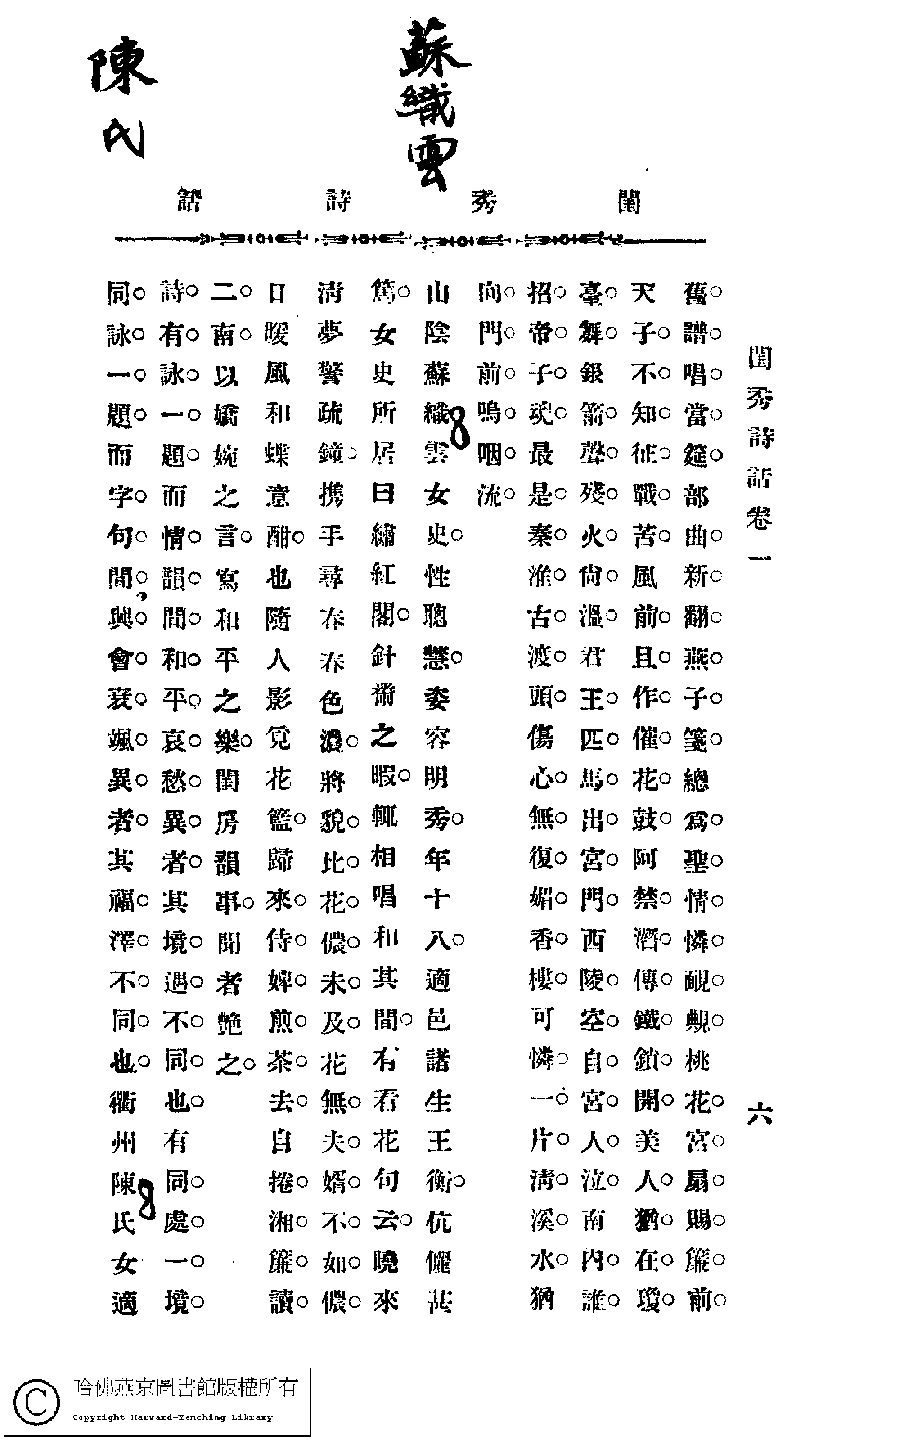 蘇織雲
陳氏
閨秀詩話
閨秀詩話卷一
六
舊譜唱當筵部曲新翻燕子箋總爲聖情憐靦覥桃花宮扇賜簾前
天子不知征戰苦風前且作催花鼓阿禁潛傳鐵鎖開美人猶在瓊
臺舞銀箭聲殘火尙溫君王匹馬出宮門西陵空自宮人泣南內誰
招帝子魂最是秦淮古渡頭傷心無復媚香樓可憐一片淸溪水猶
向門前嗚咽流
山陰蘇織雲女史性聰慧姿容明秀年十八適邑諸生王衡伉儷甚
篤女史所居曰繡紅閣針黹之暇輒相唱和其間有看花句云曉來
淸夢警疏鐘携手尋春春色濃將貌比花儂未及花無夫婿不如儂
日暖風和蝶意酣也隨人影覓花籃歸來侍婢煎茶去自捲湘簾讀
二南以嬌婉之言寫和平之樂閨房韻事聞者艷之
詩有詠一題而情韻間和平哀愁異者其境遇不同也有同處一境
同詠一題而字句間興會衰颯異者其福澤不同也衢州陳氏女適
哈佛燕京圖書館版權所有
Copyright Harvard-Yenching Library